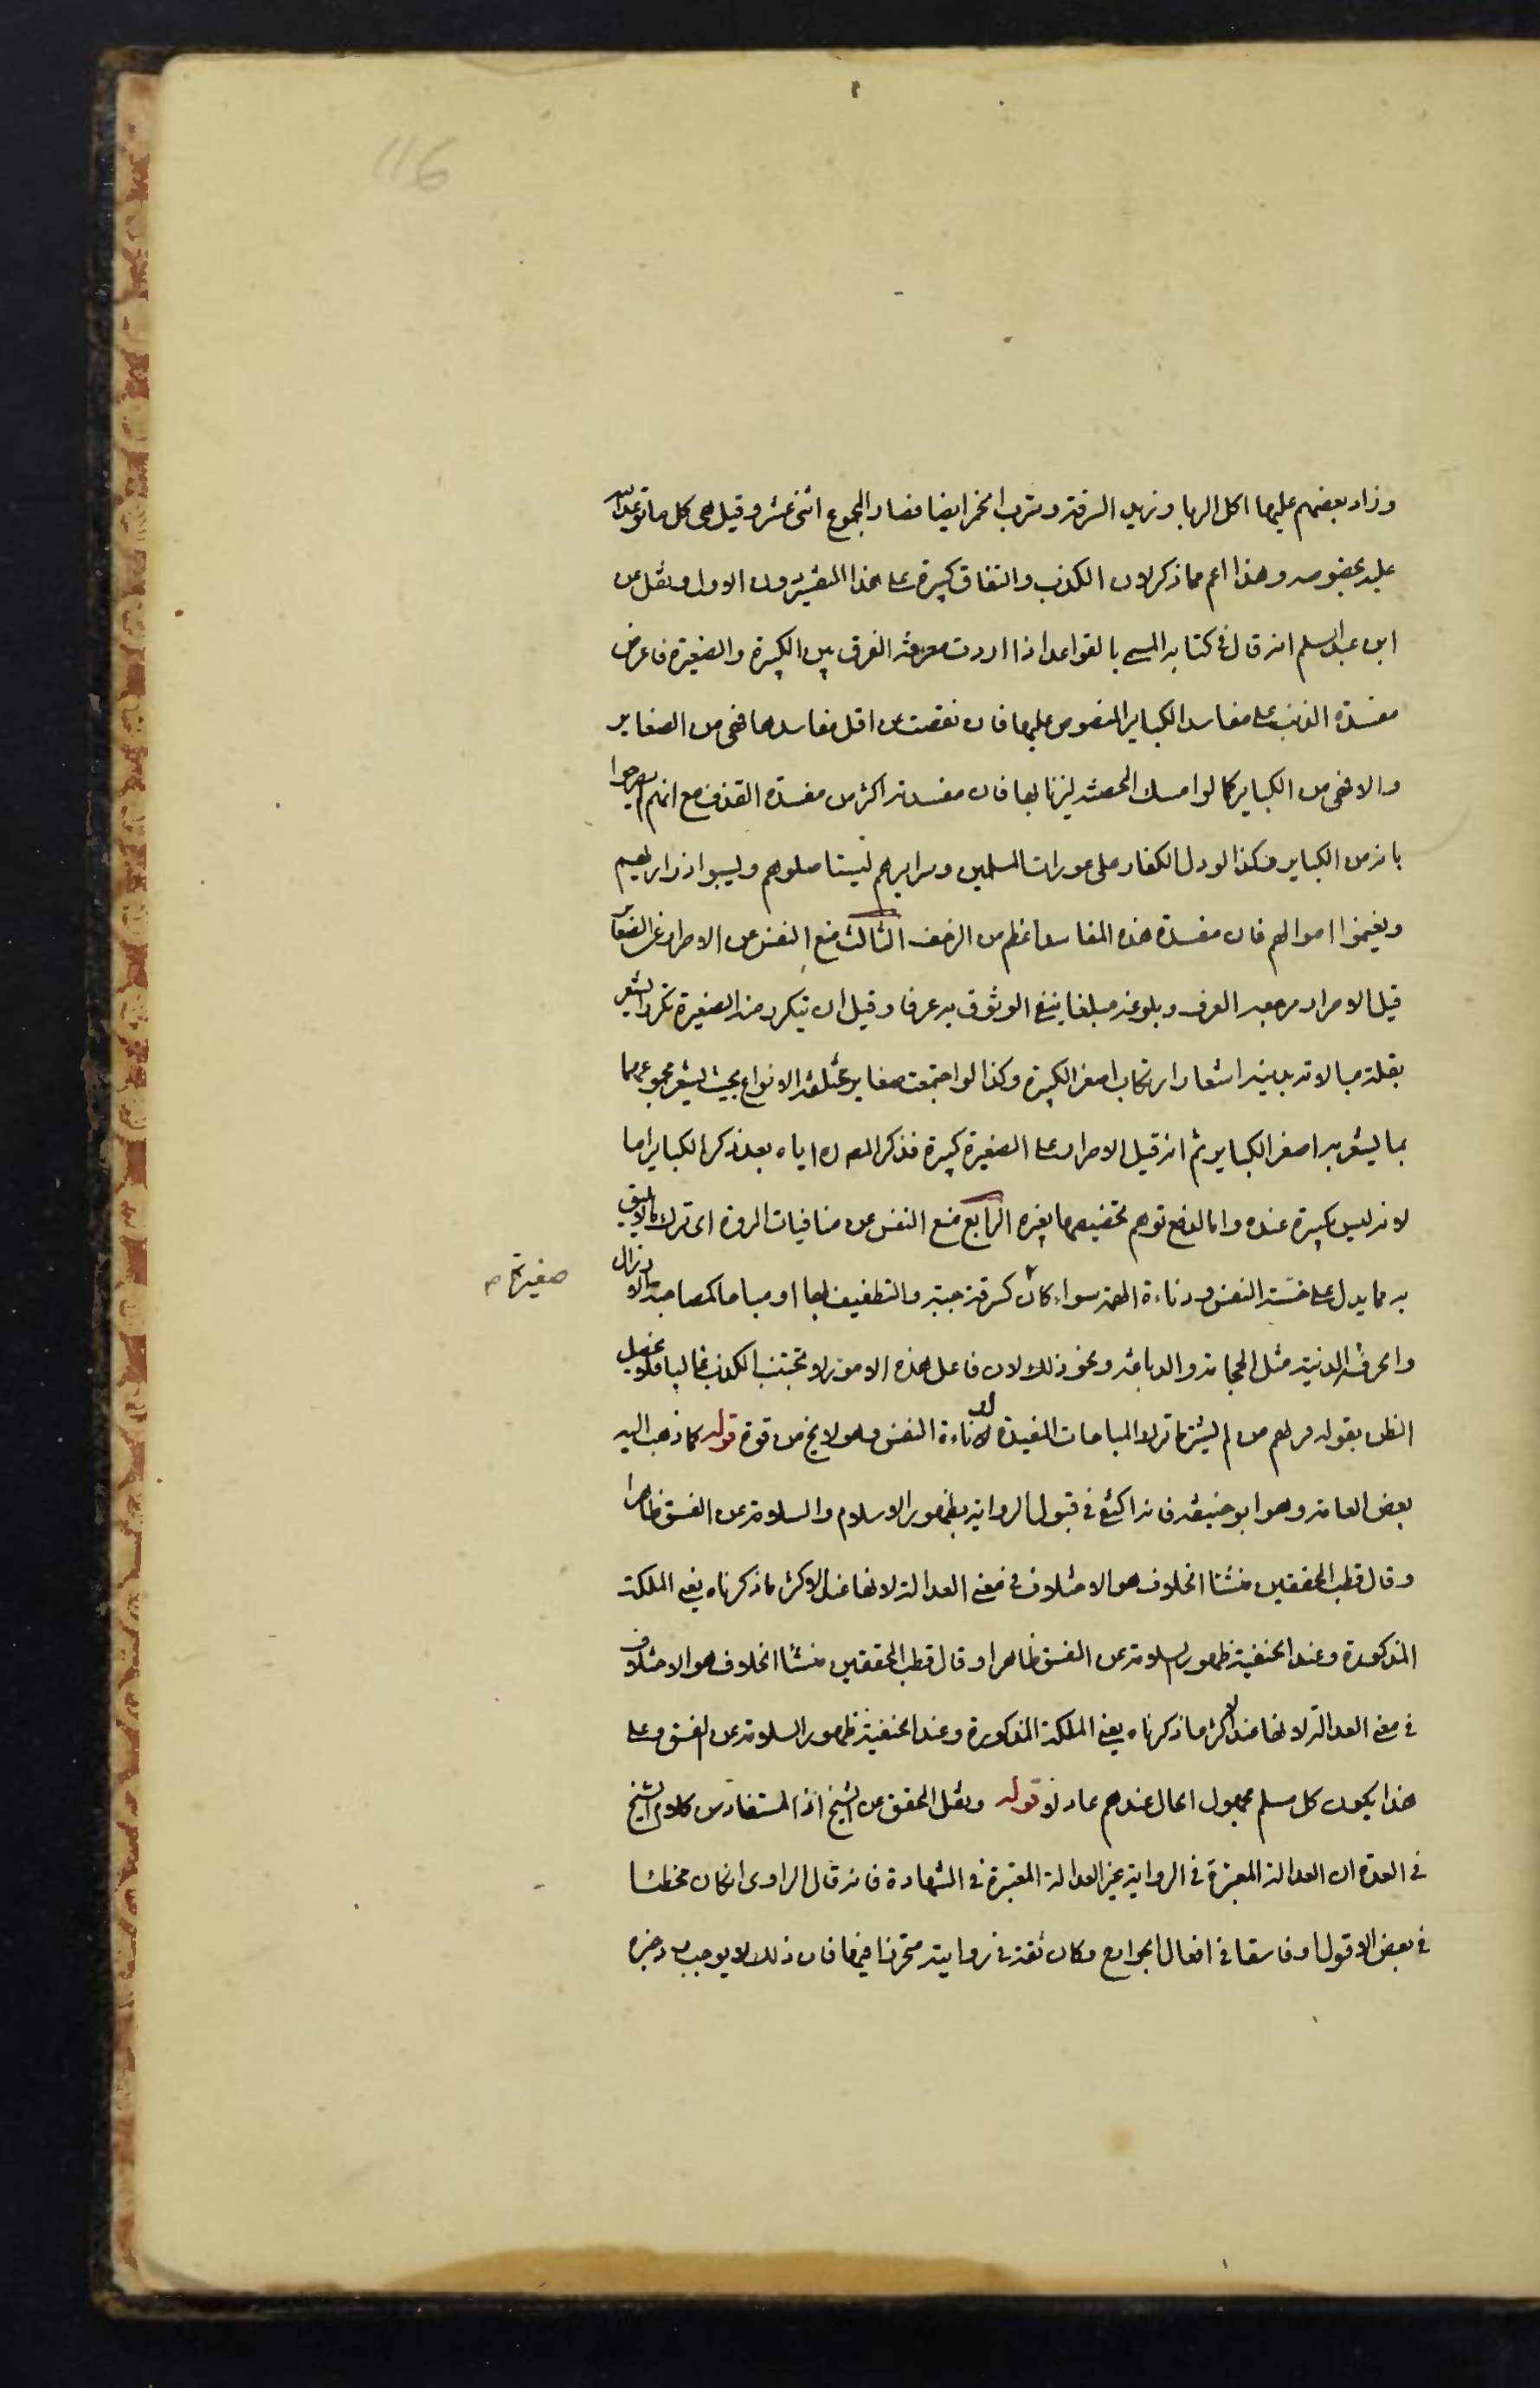 116
وزاد بعضهم عليها اكل الربا وزيد السرقة وشرب الخمر ايضا فصار المجموع اثنى عشر وقيل هى كل ما توعد الله
عليه بخصوصه وهذا اعم مما ذكر لان الكذب والنفاق كبيرة على هذا التفسير دون الاول ونقل عن
ابن عبد السلم انه قال فى كتابه المسمى بالقواعد اذا اردت معرفة الفرق بين الكبيرة والصغيرة فاعرض
مفسدة الذنب على مفاسد الكباير المنصوص عليها فان نقصت عن اقل مفاسدها فهى من الصغاير
والا فهى من الكباير كما لو امسك المحصنة ليزنا بها فان مفسدته اكثر من مفسدة القذف مع انهم لم يصرحوا
بانه من الكباير وكذا لو دل الكفار على عورات المسلمين وسرايرهم ليستاصلوهم ويسبوا ذراريهم
ويغنموا اموالهم فان مفسدة هذه المفاسد اعظم من الزحف الثالث منع النفس عن الاصرار على الصغاير
قيل الاصرار مرجعه العرف وبلوغه مبلغا ينفى الوثوق به عرفا وقيل ان يتكرر منه الصغيرة تكررا يشعر
بقلة مبالاته بدينه اشعار ارتكاب اصغر الكبيرة وكذا لو اجتمعت صغاير مختلفة الانواع بحيث يشعر مجموعها
بما يشعر به اصغر الكباير ثم انه قيل الاصرار على الصغيرة كبيرة فذكر المص ره اياه بعد ذكر الكباير اما
لانه ليس كبيرة عنده واما لدفع توهم تخصيصها بغيره الرابع منع النفس عن منافيات المروة اى ترك ما لا يليق
به مما يدل على خسة النفس ودناءة الهمة سواء كان كسرقة حبة والتطفيف بها او مباحا كمصاحبة الارذال
صغيرة ص
والحرفة الدنية مثل الحجامة والدباغة ونحو ذلك لان فاعل هذه الامور لا يجتنب الكذب غالبا فلا يحصل
الظن بقوله ومنهم من لم يشترط ترك المباحات المفيدة لدناءة النفس وهو لا يخ من قوة قوله كما ذهب اليه
بعض العامة وهو ابو حنيفة فانه اكتفى فى قبول الرواية بظهور الاسلام والسلامة عن الفسق ظاهرا
وقال قطب المحققين منشا الخلاف هو الاختلاف فى معنى العدالة لانها عند الاكثر ما ذكرناه يعنى الملكة
المذكورة وعند الحنفية ظهور السلامة عن الفسق ظاهرا وقال قطب المحققين منشا الخلاف هو الاختلاف
فى معنى العدالة لانها عند الاكثر ما ذكرناه يعنى الملكة المذكورة وعند الحنفية ظهور السلامة عن الفسق وعلى
هذا يكون كل مسلم مجهول الحال عندهم عادلا قوله ونقل المحقق عن الشيخ اذ المستفاد من كلام الشيخ
فى العدة ان العدالة المعتبرة فى الرواية غير العدالة المعتبرة فى الشهادة فانه قال الراوى ان كان مخطئا
فى بعض الاقول او فاسقا فى افعال الجوارح وكان ثقة فى روايته متحرزا فيها فان ذلك لا يوجب رد خبره